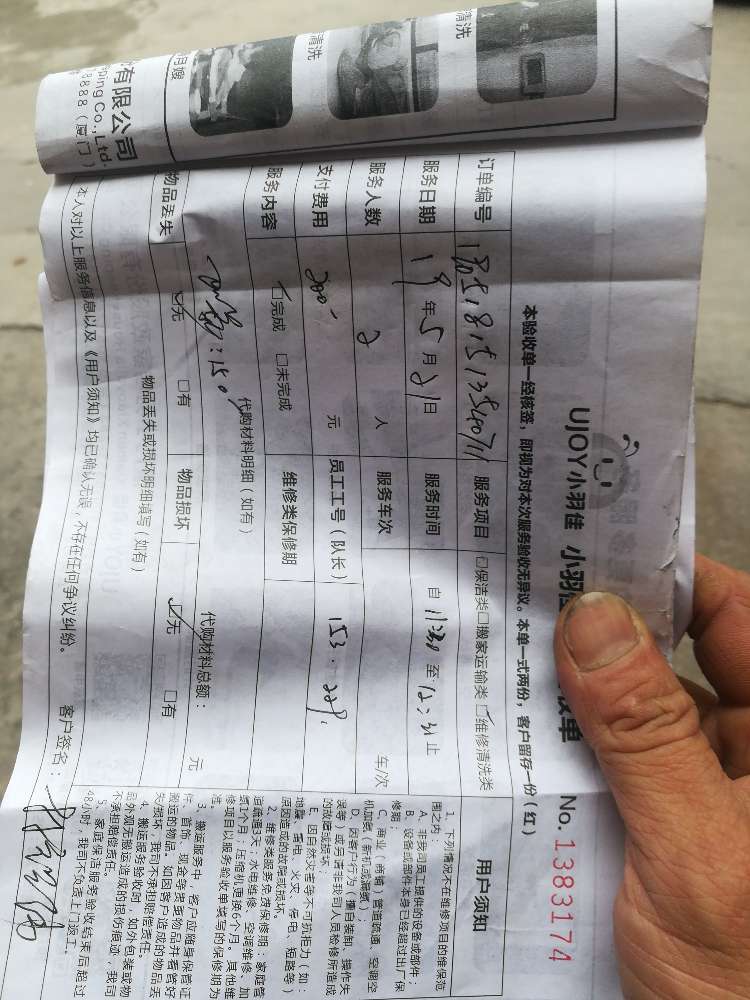 清洗
清洗
月嫂
有限公司
ping Co.,Ltd.
8888（厦门）
UJOY小羽佳 小羽佳
收单
No.1383174
本验收单一经核签，即视为对本次服务验收无异议。本单一式两份，客户留存一份（红）
订单编号
服务项目 □保洁类□搬家运输类☑维修清洗类
服务日期 19年5月21日 服务时间 自11:30至12:31止
服务人数 2 人 服务车次 车/次
支付费用 200 元 员工工号（队长） 153.228
服务内容 ☑完成 □未完成 维修类保修期
代购材料明细（如有）
:150
代购材料总额： 元
物品丢失 ☑无 □有 物品损坏 ☑无 □有
物品丢失或损坏明细填写（如有）
本人对以上服务信息以及《用户须知》均已确认无误，不存在任何争议纠纷。 客户签名：
用户须知
1、下列情况不在维修项目的维保范
围之内：
A、非我司员工提供的设备或部件；
B、设备或部件本身已经超过出厂保
修期；
C、商业（商铺）管道疏通、空调空
机加氟（新机或漏氟）；
D、因客户行为（擅自装制、操作失
误等）或另请非我司人员检修所造成
的故障或损坏；
E、因自然灾害等不可抗拒力（如：
地震、雷电、火灾、停电、短路等）
原因造成的故障或损坏。
2、维修类服务免费保修期：家庭管
道疏通3天；水电维修、空调维修、加
氟1个月；压缩机更换6个月。其他维
修项目以服务验收单填写的保修期为
准。
3、搬运服务中，客户应随身保管证
件、首饰、现金等贵重物品并看管好
搬运的物品，如因客户造成的物品丢
失/损坏，我司不承担赔偿责任。
4、搬运服务验收时，如外包装或物
品外观无搬运造成的损伤痕迹，我司
不承担赔偿责任。
5、家庭保洁服务验收结束后超过
48小时，我司不负责上门返工。